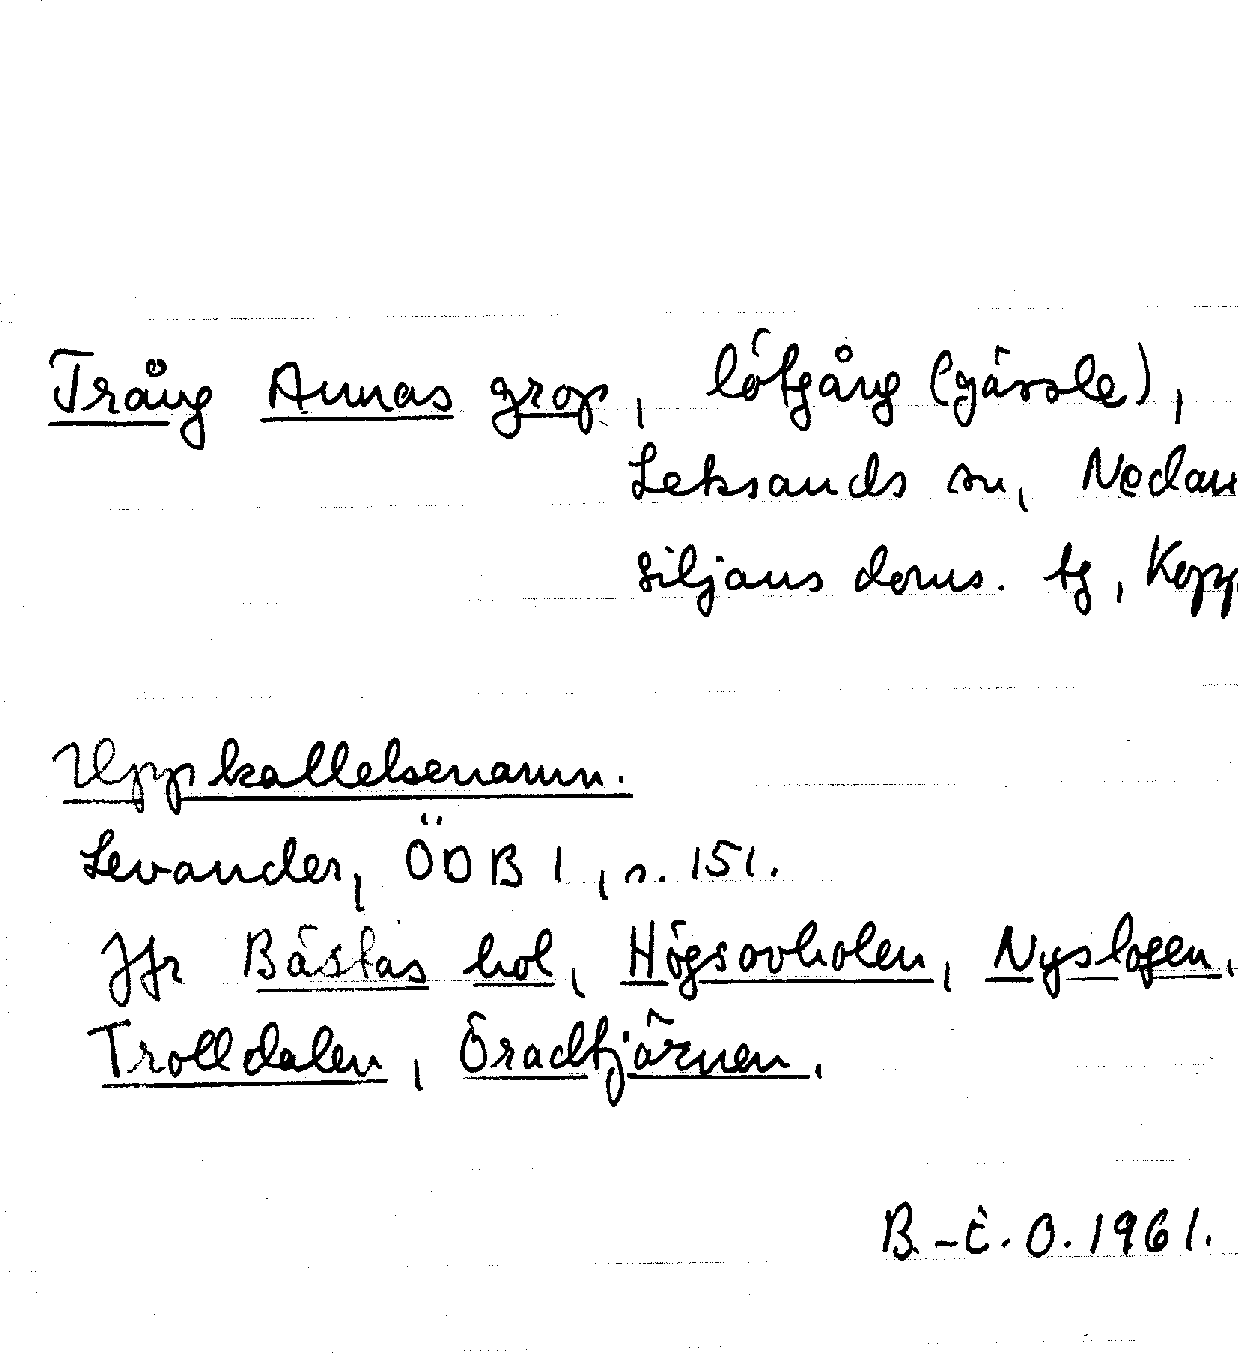 Trång Annas grop, lötgång (gärsle),
Leksands sn, Nedan
Siljans doms. tg, Kopp
Uppkallelsenamn.
Levander, ÖDB I, s. 151.
Jfr Bästas hol, Högsovholen, Nyslogen,
Trolldalen, Öradtjärnen.
B.-E. O. 1961.